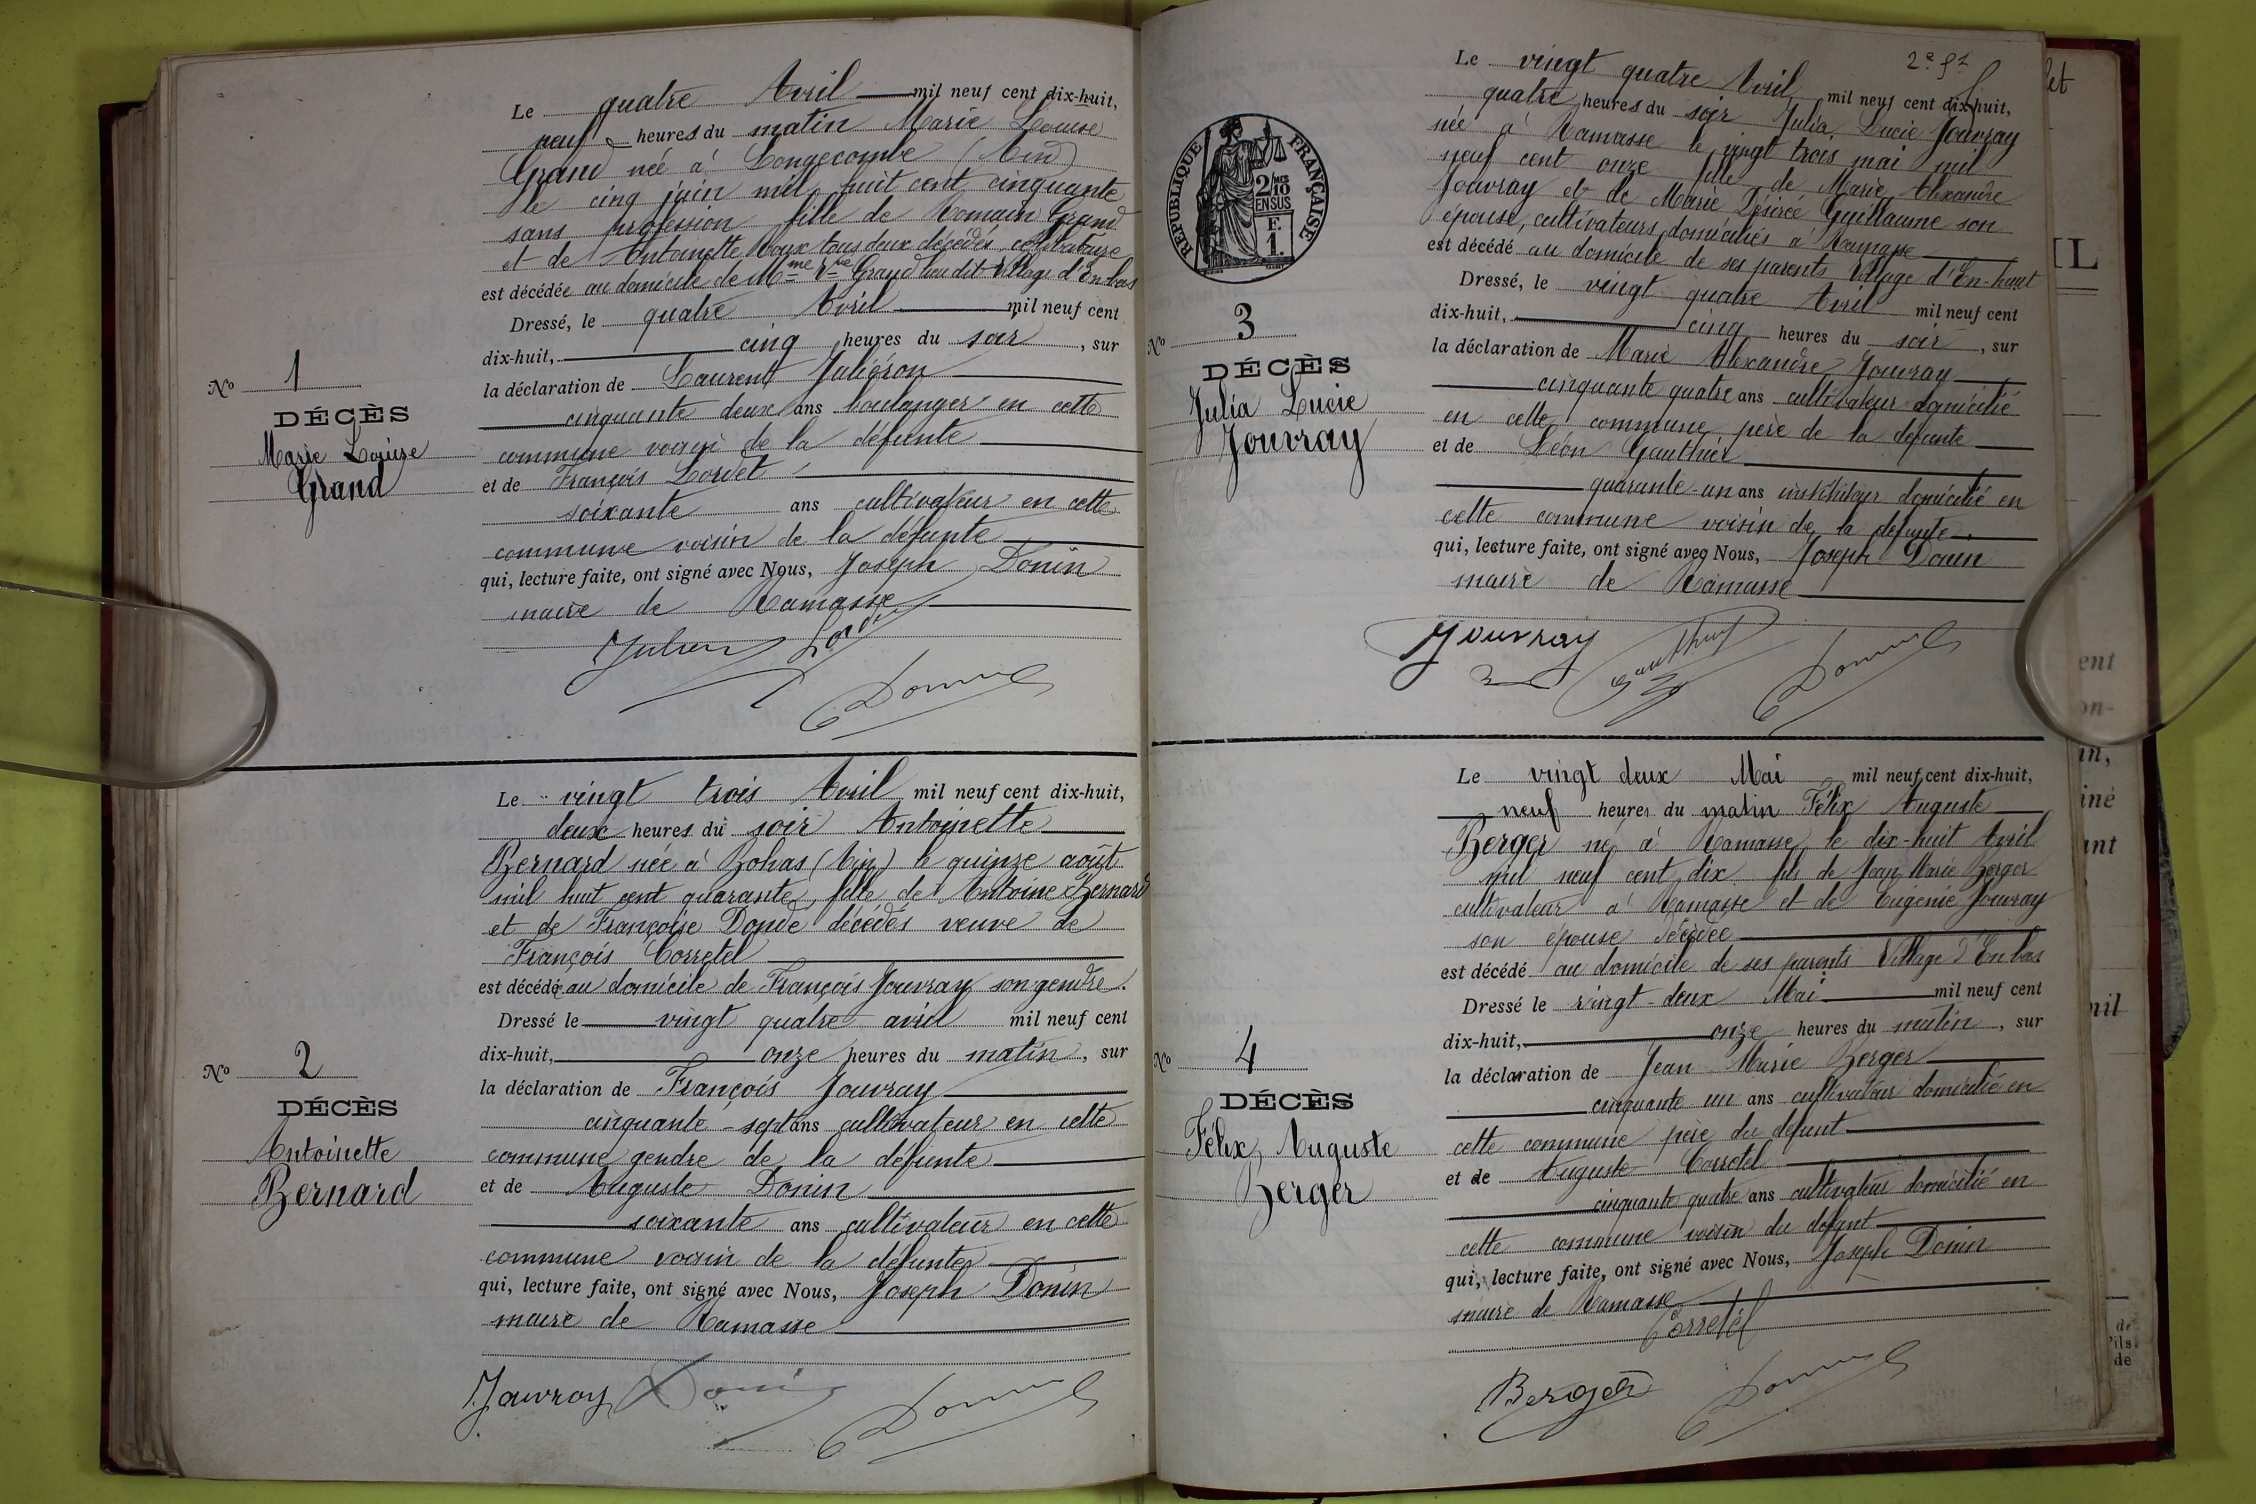 Le quatre Avril mil neuf cent dix-huit,
neuf heures du matin Marie Louise
Grand née à Longecombe (Ain)
le cinq juin mil huit cent cinquante
sans profession fille de Romain Grand
et de Antoinette Roux tous deux décédés, célibataire
est décédée au domicile de Mme Vve Grand lieu dit Village d'En bas
Dressé, le quatre Avril mil neuf cent
dix-huit, cinq heures du soir, sur
la déclaration de Laurent Juliéron
cinquante deux ans boulanger en cette
commune voisin de la défunte
et de François Lordet
soixante ans cultivateur en cette
commune voisin de la défunte
qui, lecture faite, ont signé avec Nous, Joseph Donin
maire de Ramasse
Donin
No 1
DÉCÈS
Marie Louise
Grand
Le vingt trois Avril mil neuf cent dix-huit,
deux heures du soir Antoinette
Bernard née à Bohas (Ain) le quinze août
mil huit cent quarante, fille de Antoine Bernard
et de Françoise Donde décédés veuve de
François Corretel
est décédée au domicile de François Jouvray son gendre.
Dressé le vingt quatre avril mil neuf cent
dix-huit, onze heures du matin, sur
la déclaration de François Jouvray
cinquante-sept ans cultivateur en cette
commune gendre de la défunte
et de Auguste Donin
soixante ans cultivateur en cette
commune voisin de la défunte
qui, lecture faite, ont signé avec Nous, Joseph Donin
maire de Ramasse
Jouvray Donin Donin
No 2
DÉCÈS
Antoinette
Bernard
Le vingt quatre Avril mil neuf cent dix-huit,
quatre heures du soir Julia Lucie Jouvray
née à Ramasse le vingt trois mai mil
neuf cent onze fille de Marie Alexandre
Jouvray et de Marie Désirée Guillaume son
épouse, cultivateurs domiciliés à Ramasse
est décédé au domicile de ses parents Village d'En-haut
Dressé, le vingt quatre Avril mil neuf cent
dix-huit, cinq heures du soir, sur
la déclaration de Marie Alexandre Jouvray
cinquante quatre ans cultivateur domicilié
en cette commune père de la défunte
et de Léon Gauthier
quarante-un ans instituteur domicilié en
cette commune voisin de la défunte
qui, lecture faite, ont signé avec Nous, Joseph Donin
maire de Ramasse
Jouvray Gauthier Donin
RÉPUBLIQUE FRANÇAISE
2/10 EN SUS
F. 1.
No 3
DÉCÈS
Julia Lucie
Jouvray
Le vingt deux Mai mil neuf cent dix-huit,
neuf heures du matin Félix Auguste
Berger né à Ramasse le dix-huit Avril
mil neuf cent dix fils de Jean Marie Berger
cultivateur à Ramasse et de Eugénie Jouvray
son épouse décédée
est décédé au domicile de ses parents Village d'En bas
Dressé le vingt-deux Mai mil neuf cent
dix-huit, onze heures du matin, sur
la déclaration de Jean Marie Berger
cinquante un ans cultivateur domicilié en
cette commune père du défunt
et de Auguste Corretel
cinquante quatre ans cultivateur domicilié en
cette commune voisin du défunt
qui, lecture faite, ont signé avec Nous, Joseph Donin
maire de Ramasse
Corretel
Berger Donin
No 4
DÉCÈS
Félix Auguste
Berger